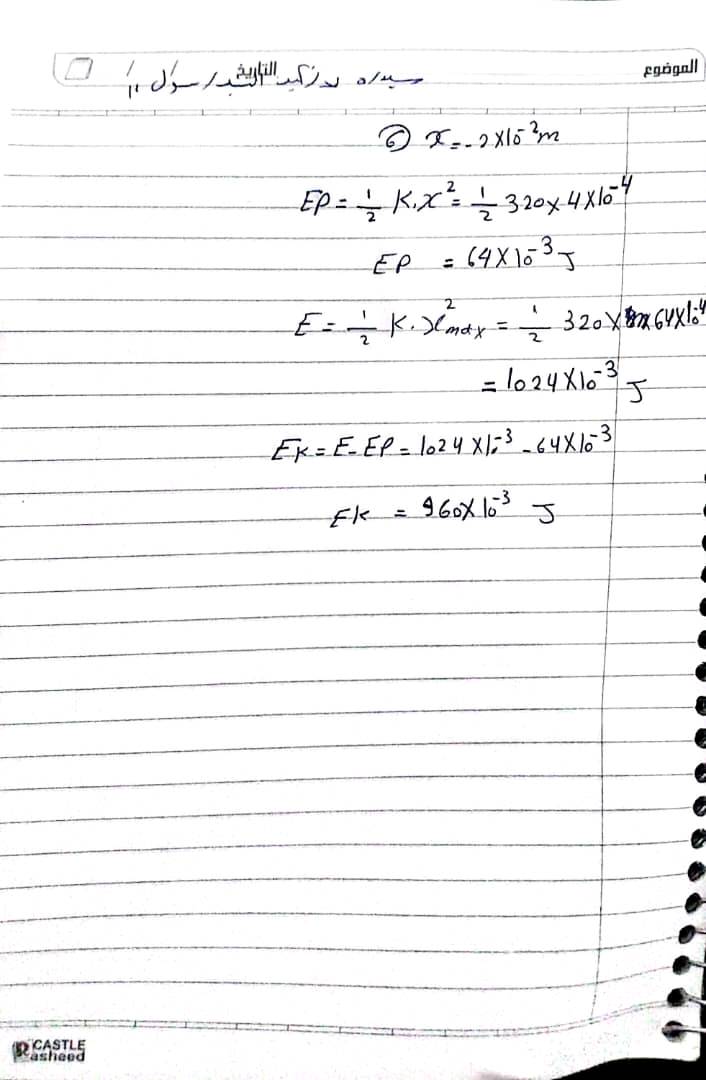 الموضوع
التاريخ / /
⑥ x = -2×10⁻²m
EP = 1/2 K.x² = 1/2 320×4×10⁻⁴
EP = 64×10⁻³ J
E = 1/2 K.x²max = 1/2 320×64×10⁻⁴
= 1024×10⁻³ J
EK = E - EP = 1024×10⁻³ - 64×10⁻³
EK = 960×10⁻³ J
CASTLE
Rasheed